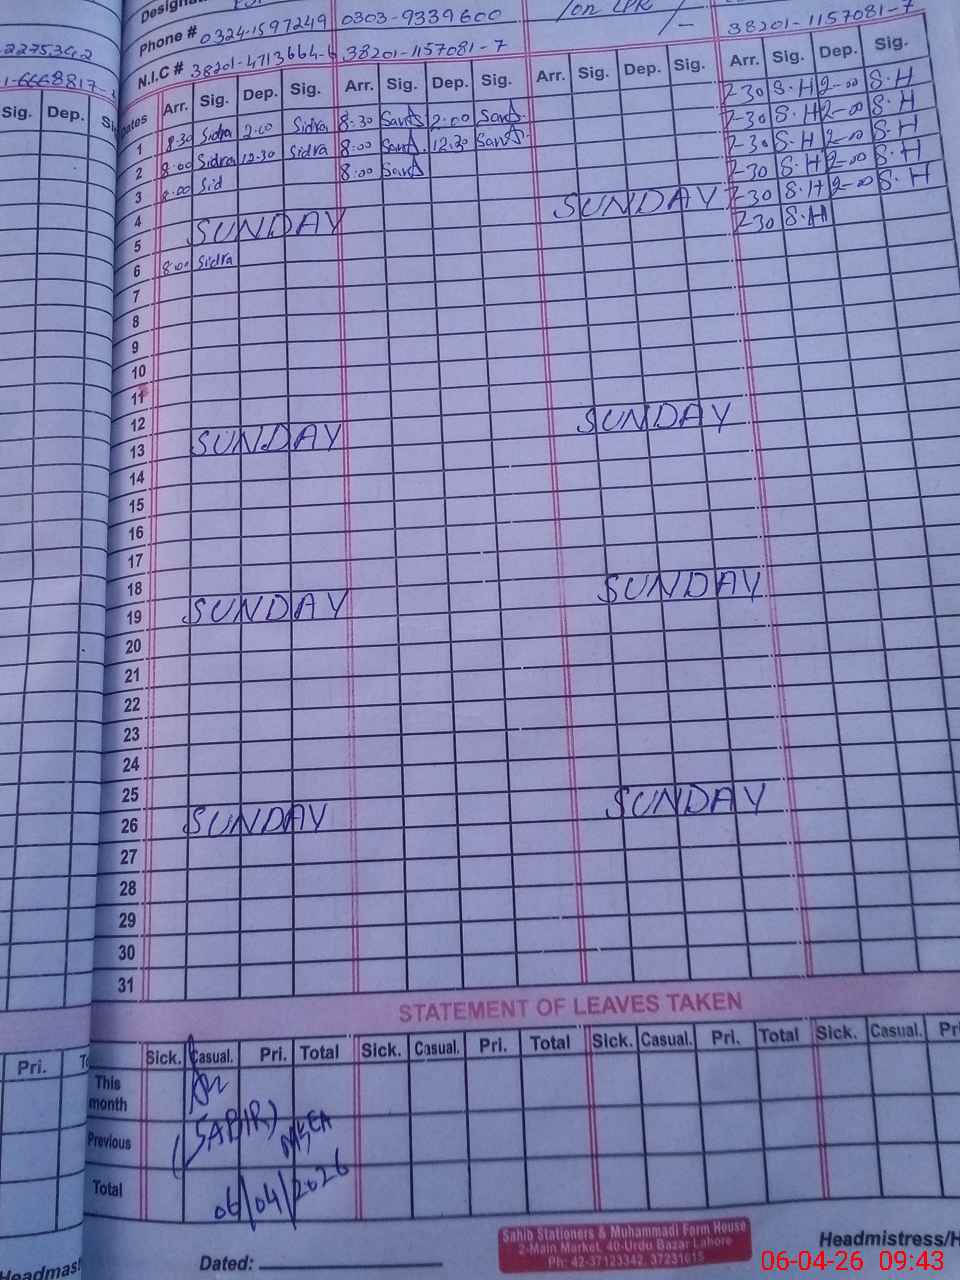 Phone # 0324-1597249 0303-9339600 /on LPR /-
N.I.C # 38201-4713664-6 38201-1157081-7 38201-1157081-7
2275392
Sig. Dep.
Dates Arr. Sig. Dep. Sig. Arr. Sig. Dep. Sig. Arr. Sig. Dep. Sig. Arr. Sig. Dep. Sig.
1 8:30 Sidra 2:00 Sidra 8:30 2:00 7-30 S.H 2-00 S.H
2 8:00 Sidra 12:30 Sidra 8:00 12:30 7-30 S.H 2-00 S.H
3 8:00 Sid 8:00 7-30 S.H 2-00 S.H
4 7-30 S.H 2-00 S.H
5 SUNDAY SUNDAY 7-30 S.H 2-00 S.H
6 8:00 Sidra 7-30 S.H
7
8
9
10
11
12 SUNDAY
13 SUNDAY
14
15
16
17
18 SUNDAY
19 SUNDAY
20
21
22
23
24
25 SUNDAY
26 SUNDAY
27
28
29
30
31
STATEMENT OF LEAVES TAKEN
Pri. Sick. Casual. Pri. Total Sick. Casual. Pri. Total Sick. Casual. Pri. Total Sick. Casual.
This month
Previous (SABIR) MEA
Total
06/04/2026
Dated:
Sahib Stationers & Muhammadi Form House
2-Main Market, 40-Urdu Bazar Lahore
Ph: 42-37123342, 37231615
Headmistress/H
06-04-26 09:43